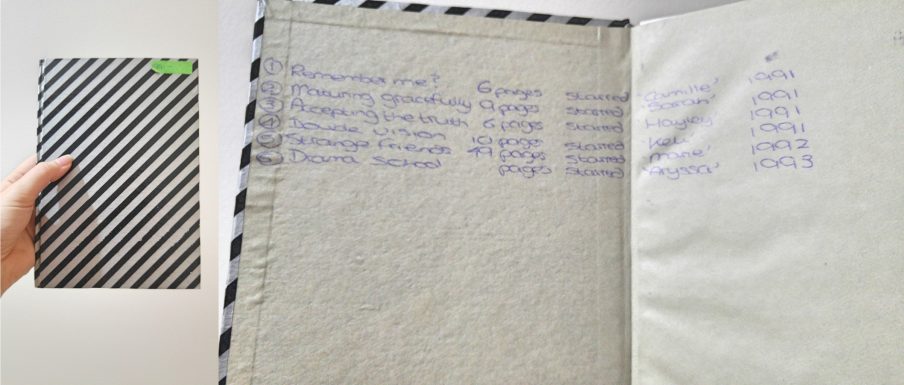 ① Remember me? 6 pages starred 'Camille' 1991
② Maturing gracefully 9 pages starred 'Sarah' 1991
③ Accepting the truth 6 pages starred 'Hayley' 1991
④ Double vision 10 pages starred 'Keli' 1991
⑤ Strange friends 49 pages starred 'Marie' 1992
⑥ Drama school pages starred 'Aryssa' 1993